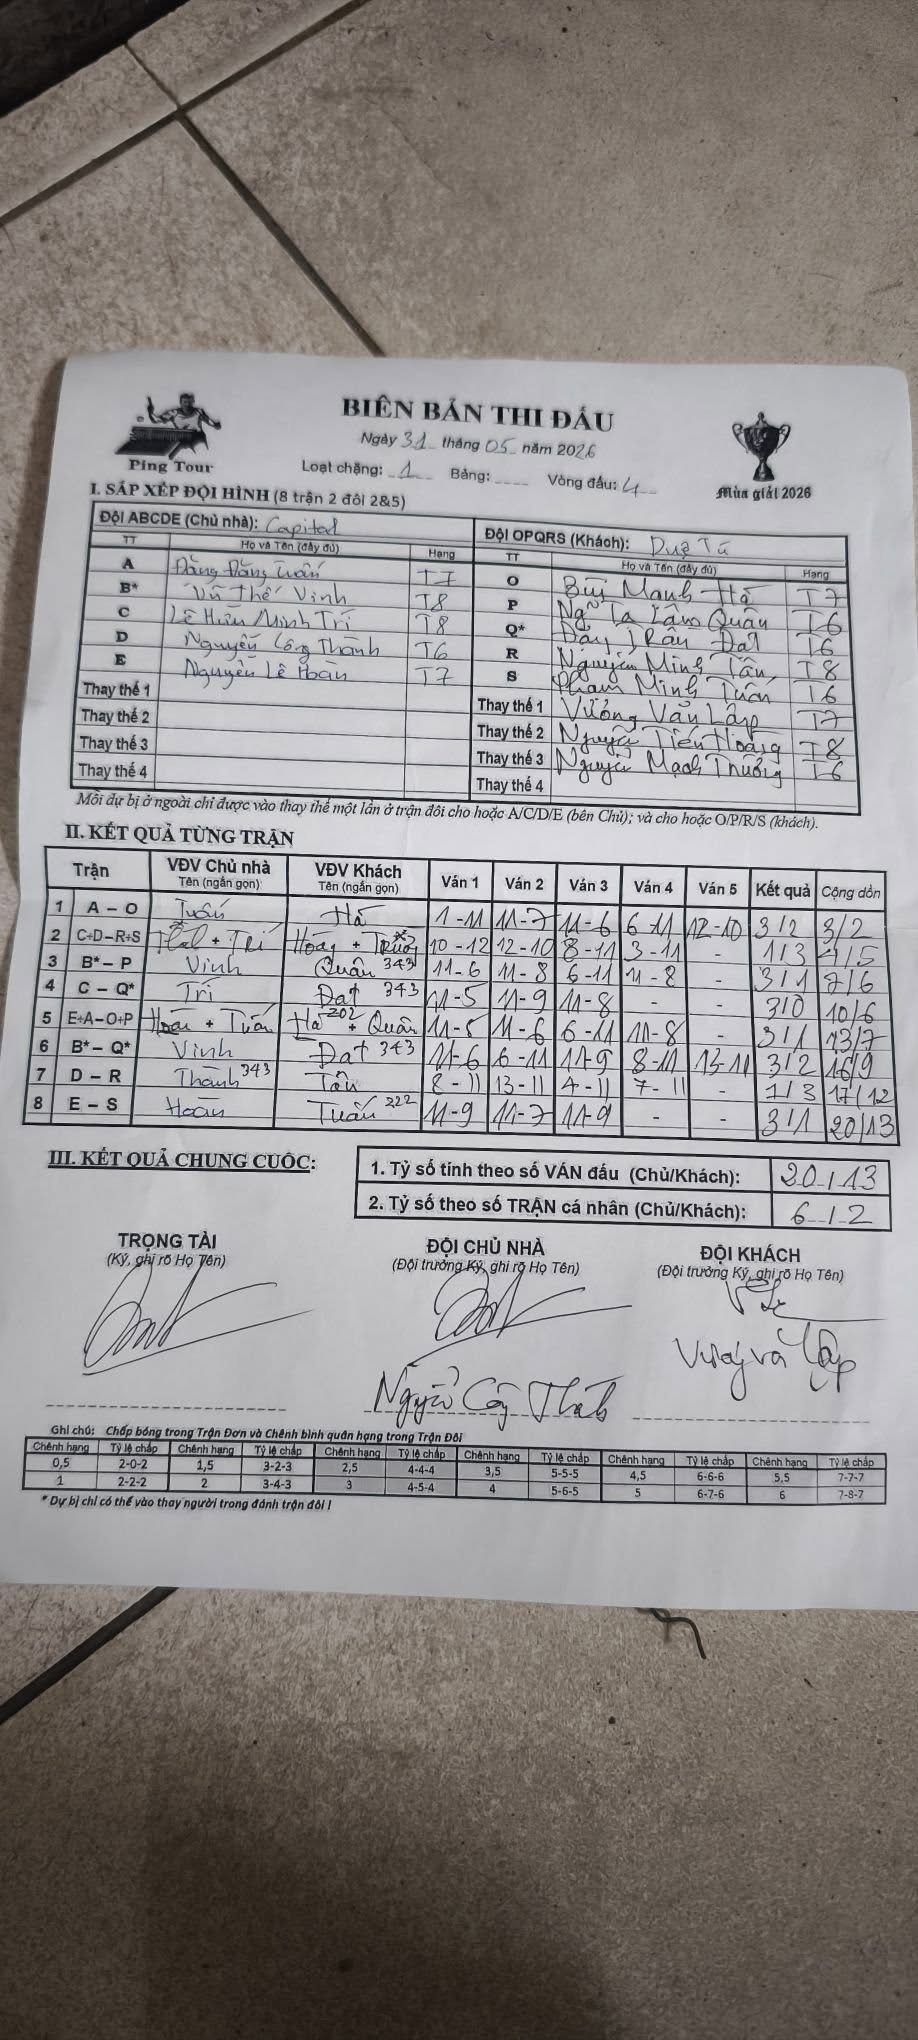 BIÊN BẢN THI ĐẤU
Ngày 31 tháng 05 năm 2026
Ping Tour
Loạt chặng: 1 Bảng: Vòng đấu: 4
Mùa giải 2026
I. SẮP XẾP ĐỘI HÌNH (8 trận 2 đôi 2&5)
Đội ABCDE (Chủ nhà): Capital Đội OPQRS (Khách):
TT Họ và Tên (đầy đủ) Hạng TT Họ và Tên (đầy đủ) Hạng
A Đặng Đăng Tuấn T7 O Bùi Mạnh Hà T7
B* Vũ Thế Vinh T8 P Ngô Tạ Lâm Quân T6
C Lê Hiền Minh Trí T8 Q* Trần Đạt T6
D Nguyễn Công Thành T6 R Nguyễn Minh Tân T8
E Nguyễn Lê Hoàn T7 S Phạm Minh Tuấn T6
Thay thế 1 Thay thế 1 Vương Văn Lập T7
Thay thế 2 Thay thế 2 Nguyễn Tiến Hoàng T8
Thay thế 3 Thay thế 3 Nguyễn Mạnh Trường T6
Thay thế 4 Thay thế 4
Mỗi dự bị ở ngoài chỉ được vào thay thế một lần ở trận đôi cho hoặc A/C/D/E (bên Chủ); và cho hoặc O/P/R/S (khách).
II. KẾT QUẢ TỪNG TRẬN
Trận VĐV Chủ nhà Tên (ngắn gọn) VĐV Khách Tên (ngắn gọn) Ván 1 Ván 2 Ván 3 Ván 4 Ván 5 Kết quả Cộng dồn
1 A – O Tuấn Hà 1-11 11-7 11-6 6-11 12-10 3/2 3/2
2 C+D–R+S + Trí Hoàng + Trường 10-12 12-10 8-11 3-11 - 1/3 4/5
3 B* – P Vinh Quân 343 11-6 11-8 6-11 11-8 - 3/1 7/6
4 C – Q* Trí Đạt 343 11-5 11-9 11-8 - - 3/0 10/6
5 E+A–O+P Hoàn + Tuấn Hà 202 + Quân 11-5 11-6 6-11 11-8 - 3/1 13/7
6 B* – Q* Vinh Đạt 343 11-6 6-11 11-9 8-11 13-11 3/2 16/9
7 D – R Thành 343 Tân 8-11 13-11 4-11 7-11 - 1/3 17/12
8 E – S Hoàn Tuấn 222 11-9 11-7 11-9 - - 3/1 20/13
III. KẾT QUẢ CHUNG CUỘC:
1. Tỷ số tính theo số VÁN đấu (Chủ/Khách): 20/13
2. Tỷ số theo số TRẬN cá nhân (Chủ/Khách): 6/2
TRỌNG TÀI ĐỘI CHỦ NHÀ ĐỘI KHÁCH
(Ký, ghi rõ Họ Tên) (Đội trưởng Ký, ghi rõ Họ Tên) (Đội trưởng Ký, ghi rõ Họ Tên)
Nguyễn Công Thành
Ghi chú: Chấp bóng trong Trận Đơn và Chênh bình quân hạng trong Trận Đôi
Chênh hạng Tỷ lệ chấp Chênh hạng Tỷ lệ chấp Chênh hạng Tỷ lệ chấp Chênh hạng Tỷ lệ chấp Chênh hạng Tỷ lệ chấp Chênh hạng Tỷ lệ chấp
0,5 2-0-2 1,5 3-2-3 2,5 4-4-4 3,5 5-5-5 4,5 6-6-6 5,5 7-7-7
1 2-2-2 2 3-4-3 3 4-5-4 4 5-6-5 5 6-7-6 6 7-8-7
* Dự bị chỉ có thể vào thay người trong đánh trận đôi !